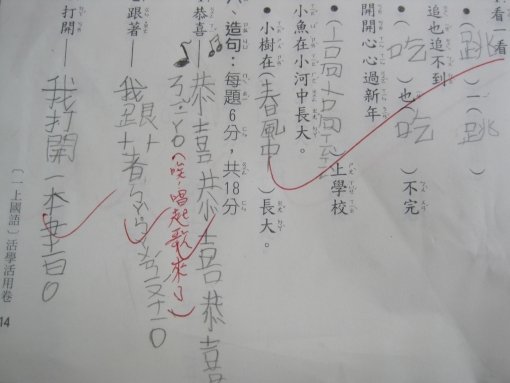 看一看
(跳)一(跳)
追也追不到
(吃)也(吃)不完
開開心心過新年
上學校
小魚在小河中長大。
小樹在(春風中)長大。
、造句：每題6分，共18分
恭喜—恭喜恭喜恭喜
(唉，唱起歌來了)
跟著—我跟
打開—我打開一本
〔一上國語〕活學活用卷
14